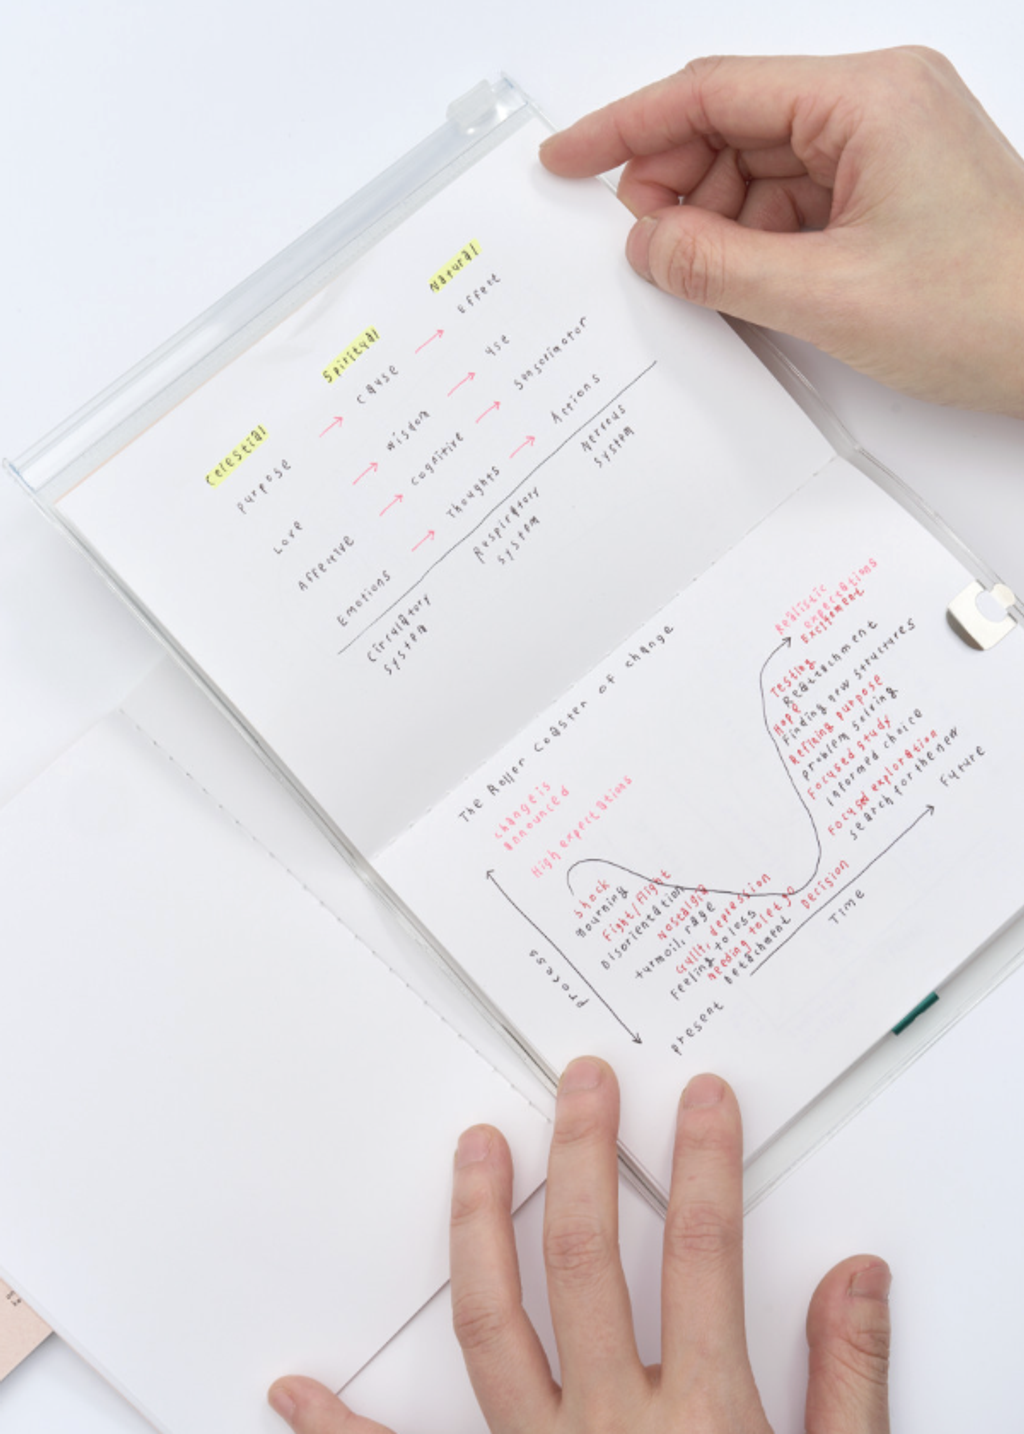 Celestial Spiritual Natural
Purpose → cause → Effect
Love → wisdom → use
Affective → cognitive → sensorimotor
Emotions → Thoughts → Actions
Circulatory system Respiratory system Nervous system
The Roller coaster of change
change is
announced
High expectations
Shock
Mourning
Fight/Flight
Disorientation
Nostalgia
turmoil, rage
Guilt, depression
Feeling to loss
Needing to let go
Detachment
Decision
Realistic
expectations
Excitement
Testing
Reattachment
Hope
Finding new structures
Refining purpose
problem solving
Focused study
Informed choice
Focused exploration
search for the new
Process
present
Time
Future